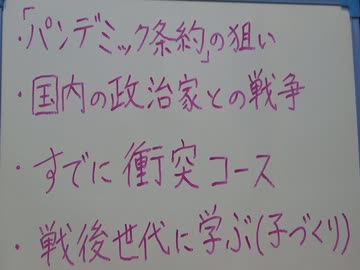 ・「パンデミック条約」の狙い
・国内の政治家との戦争
・すでに衝突コース
・戦後世代に学ぶ(子づくり)